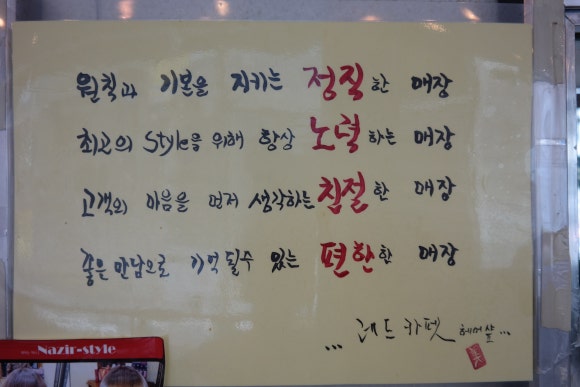 원칙과 기본을 지키는 정직한 매장
최고의 Style을 위해 항상 노력하는 매장
고객의 마음을 먼저 생각하는 친절한 매장
좋은 만남으로 기억될수 있는 편한한 매장
... 레드카펫 헤어샾 ...
Nazir-style